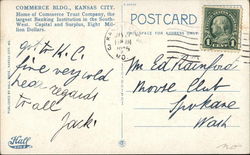 COMMERCE BLDG., KANSAS CITY.
Home of Commerce Trust Company, the
largest Banking Institution in the South-
West. Capital and Surplus, Eight Mil-
lion Dollars.
POSTCARD
got to K.C.
fine very cold
here regards
to all
Jack
Mr Ed Rainford
Moose Club
Spokane
Wash
Hall
no